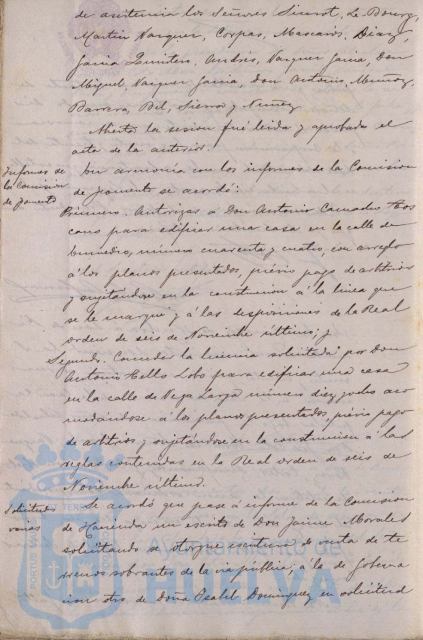 de asistencia los Señores Sinrot, Le Bourg,
Martin Vazquez, Corpas, Mascaros, Diaz,
Garcia Quintero, Andrés, Vazquez Garcia, Don
Miguel Vazquez Garcia, Don Antonio, Muñoz,
Barrera, Bel, Sierra y Nuñez
Abierta la sesion fué leida y aprobada el
acta de la anterior.
Informes de
la Comision
de fomento
En armonia con los informes de la Comision
de fomento se acordó:
Primero. Autorizar á Don Antonio
cano para edificar una casa en la calle de
enmedio, número cuarenta y cuatro, con arreglo
á los planos presentados, prévio pago de arbitrios
y sujetándose en la construccion á la linea que
se le marque y á las disposiciones de la Real
orden de seis de Noviembre último; y
Segundo. Conceder la licencia solicitada por Don
Antonio Tello Lobo para edificar una casa
en la calle de Vega Larga número diez y ocho aco
modándose á los planos presentados, prévio pago
de arbitrios y sujetándose en la construccion á las
reglas contenidas en la Real orden de seis de
Noviembre último.
Solicitudes
varias
Se acordó que pase á informe de la Comision
de Hacienda un escrito de Don Jaime Morales
solicitando se otorgue escritura de venta de te
rrenos sobrantes de la via pública; á la de Goberna
cion otro de Doña Isabel Dominguez en solicitud
Ayuntamiento de
HUELVA